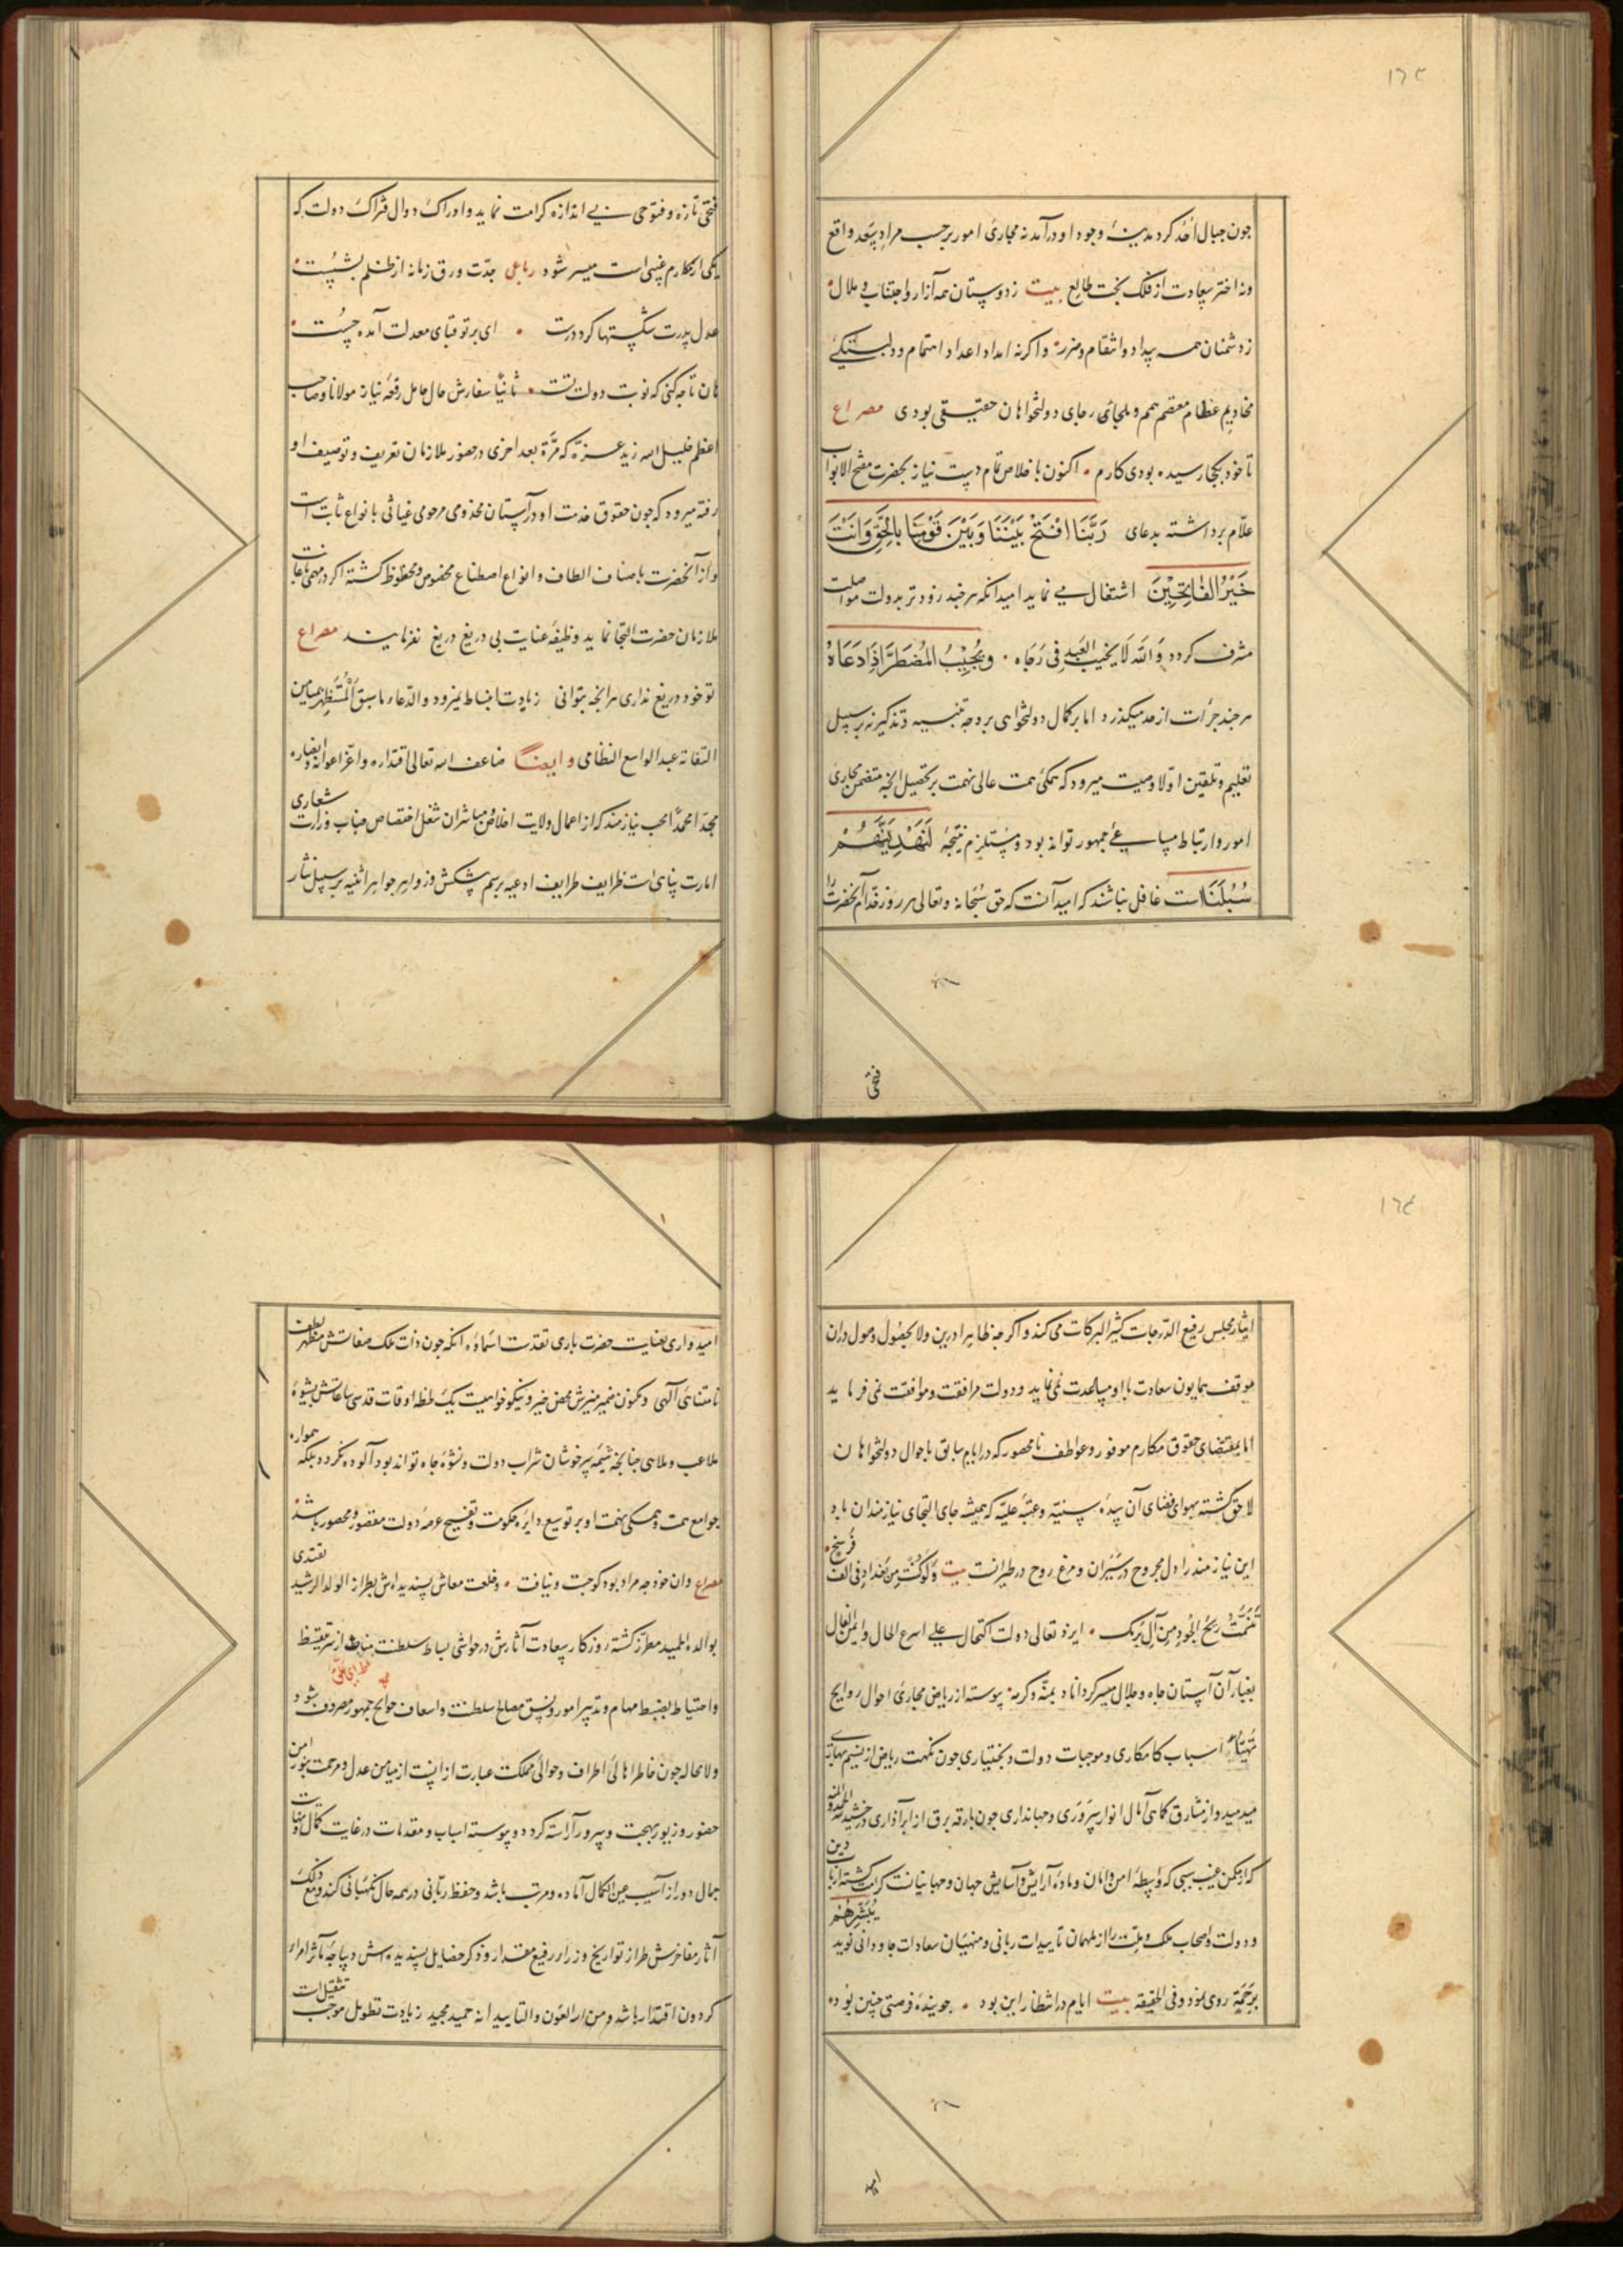 ١٦٣
چون جبال احد کرد مدینهٔ وجود او درآمد نه مجاری امور برحسب مراد بتعد واقع
ونه اختر سعادت از فلک بخت طالع بیت ز دوستان همه آزار واجتناب و ملال
ز دشمنان همه بیداد وانتقام وضرر واکر نه امداد اعداد اهتمام ودلبستکئ
مخادیم عظام معتصم همم وملجائ رجای دولتخواهان حقیقی بودی مصراع
تا خود بکجا رسیده بودی کارم اکنون باخلاص تمام دست نیاز بحضرت مفتح الابواب
علّام برداشته بدعای رَبَّنَا افْتَحْ بَيْنَنَا وَبَيْنَ قَوْمِنَا بِالْحَقِّ وَاَنْتَ
خَيْرُ الْفَاتِحِيْنَ اشتغال می نماید امید انکه هرچند زودتر بدولت مواصلت
مشرف کردد وَاللّه لَا يخيب العَبد فِي رَجَاه وَيُجِيْبُ الْمُضْطَرَّ اِذَا دَعَاهُ
هرچند جرأت از حد میکذرد اما بر کمال دولتخواهی بر وجه تنبیه وتذکیر نه بر سبیل
تعلیم وتلقین اولا وصیت میرود که همکئ همت عالی نهمت بر تحصیل انچه متضمن مجاری
امور وارتباط مساعئ جمهور تواند بود ومستلزم نتیجهٔ لَنَهْدِيَنَّهُمْ
سُبُلَنَا است غافل نباشند که امید آنست که حق سبحانه وتعالی هر روز قدام آنحضرت را
فتحی
فتحی تازه وفتوحی بی اندازه کرامت نماید واوراک دوال فتراک دولت که
یکی از مکارم غیبی است میسر شود رباعی جدّت ورق زمانه از ظلم بشست
عدل پدرت شکستها کرد درست ای بر تو قبای معدلت آمده چست
هان تا چه کنی که نوبت دولت تست ثانیًا سفارش حال حامل رقعهٔ نیاز مولانا وصاحب
اعظم خلیل الله زید عزه که مرّة بعد اخری در حضور ملازمان تعریف وتوصیف او
رفته میرود که چون حقوق خدمت او در آستان مخدومی مرحومی غیاثی بانواع ثابت است
واز آنحضرت باصناف الطاف وانواع اصطناع مخصوص ومحظوظ کشته اکر در مهمی بجانب
ملازمان حضرت التجا نماید وظیفهٔ عنایت بی دریغ دریغ نفرمایند مصراع
تو خود دریغ نداری هر انچه بتوانی زیادت انبساط نمیرود والدّعاء ماسبق المُتَنظِر بمیامن
التفاته عبد الواسع النظامی وایضًا ضاعف الله تعالی اقتداره واعزّ اعوانه وانصاره
مجدّا محمدًا محب نیازمند که از اعمال ولایت اخلاص مباشران شغل اختصاص جناب وزارت شعاری
امارت پناهی است ظرایف طرایف ادعیه برسم پیشکش وزواهر جواهر اثنیه بر سبیل نثار
١٦٤
ایثار مجلس رفیع الدّرجات کثیر البرکات می کند واکرچه ظاهرا درین ولا بحصول وصول دران
موقف همایون سعادت با او مساعدت نمی نماید ودولت مرافقت وموافقت نمی فرماید
اما بمقتضای حقوق مکارم موفور وعواطف نامحصور که در ایام سابق باحوال دولتخواهان
لاحق کشته بهوای فضای آن سدهٔ سنیّه وعتبهٔ علیّه که همیشه جای التجای نیازمندان باد
این نیازمند را دل مجروح در سَیَران ومرغ روح در طیرانست بیت وَلَوْ كُنْتُ مِنْ بَغْدَادَ فِي اَلْفِ فَرْسَخٍ
تَنَسَّمْتُ رِيْحَ الجُوْدِ مِنْ آلِ بَرْمَك ایزد تعالی دولت اکتحال علی اسرع الحال وایمن الفال
بغبار آن آستان جاه وجلال میسر کرداناد بمنّه وکرمه پیوسته از ریاض مجاری احوال روایح
تهیّاء اسباب کامکاری وموجبات دولت وبختیاری چون نکهت ریاض از نسیم بهاری
میدمید واز مشارق کمای آمال انوار سروری وجهانداری چون بارقه برق از ابر آذاری درخشید المنة لله
که از مکمن غیب سببی که واسطهٔ امن وامان ومادهٔ آرایش وآسایش جهان وجهانیانست کرامت کشته ارباب دین
ودولت واصحاب ملک وملت را از ملهمان تاییدات ربانی ومنهیان سعادات جاودانی نوید يُبَشِّرُهُمْ
بِرَحْمَةٍ روی نمود وفی الحقیقه بیت ایام در انتظار این بود جویندهٔ فرصتی چنین بود
امید
امیدواری بعنایت حضرت باری تقدّست اسماؤه انکه چون ذات ملک صفاتش مظهر لطف
نامتناهئ آلهی ومکنون ضمیر منیرش محض خیر ونیکوخواهیست یک لحظه اوقات قدسی ساعاتش بشیوهٔ
ملاعب وملاهی چنانچه شیمهٔ سرخوشان شراب دولت ونشوهٔ جاه تواند بود آلوده نکردد بلکه همواره
جوامع همت وهمکی نهمت او بر توسیع دایرهٔ حکومت وتفسیح عرصهٔ دولت مقصور ومحصور باشد
مصراع وان خود چه مراد بود کو جست ونیافت وخلعت معاش پسندیده اش بطراز الولد الرشید یقتدی
بوالده الحمید مطرّز کشته روزکار سعادت آثارش در حواشی بساط سلطنت مناط از سر تیقظ
واحتیاط بضبط مهام وتدبیر امور ونسق مصالح سلطنت واسعاف حوایج جمهور مصروف شود
ولامحاله چون خاطر اهالئ اطراف وحوالئ مملکت عبارت از انست از میامن عدل ومرحمت بنور امن
حضور وزیور بهجت وسرور آراسته کردد وپیوسته اسباب ومقدمات در غایت کمال ونهایت
جمال دور از آسیب عین الکمال آماده ومرتب باشد وحفظ ربّانی در همه حال نکهبانی کند ومع ذلک
آثار مفاخرش طراز تواریخ وزراء رفیع مقدار وذکر خصایل پسندیده اش دیباچهٔ مآثر امراء
کردون اقتدار باشد ومن الله العَون والتایید انه حمید مجید زیادت تطویل موجب تثقیل است